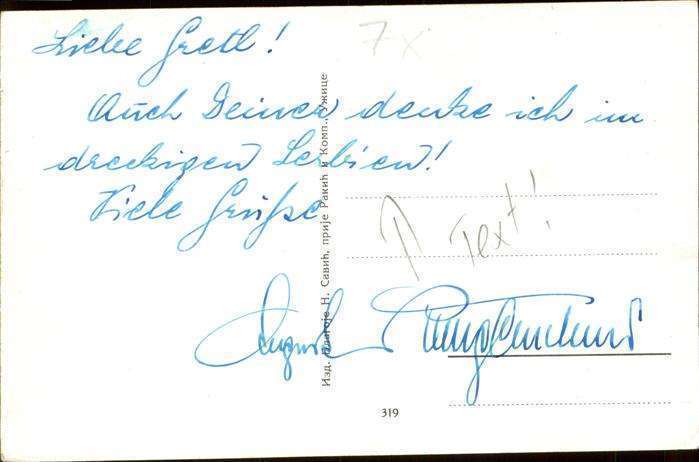 Liebe Gretl!
7x
Auch Deiner denke ich im
dreckigen Serbien!
Viele Grüße
Text!
Изд. Благоје Н. Савић, прије Ракић и Комп., Ужице
319